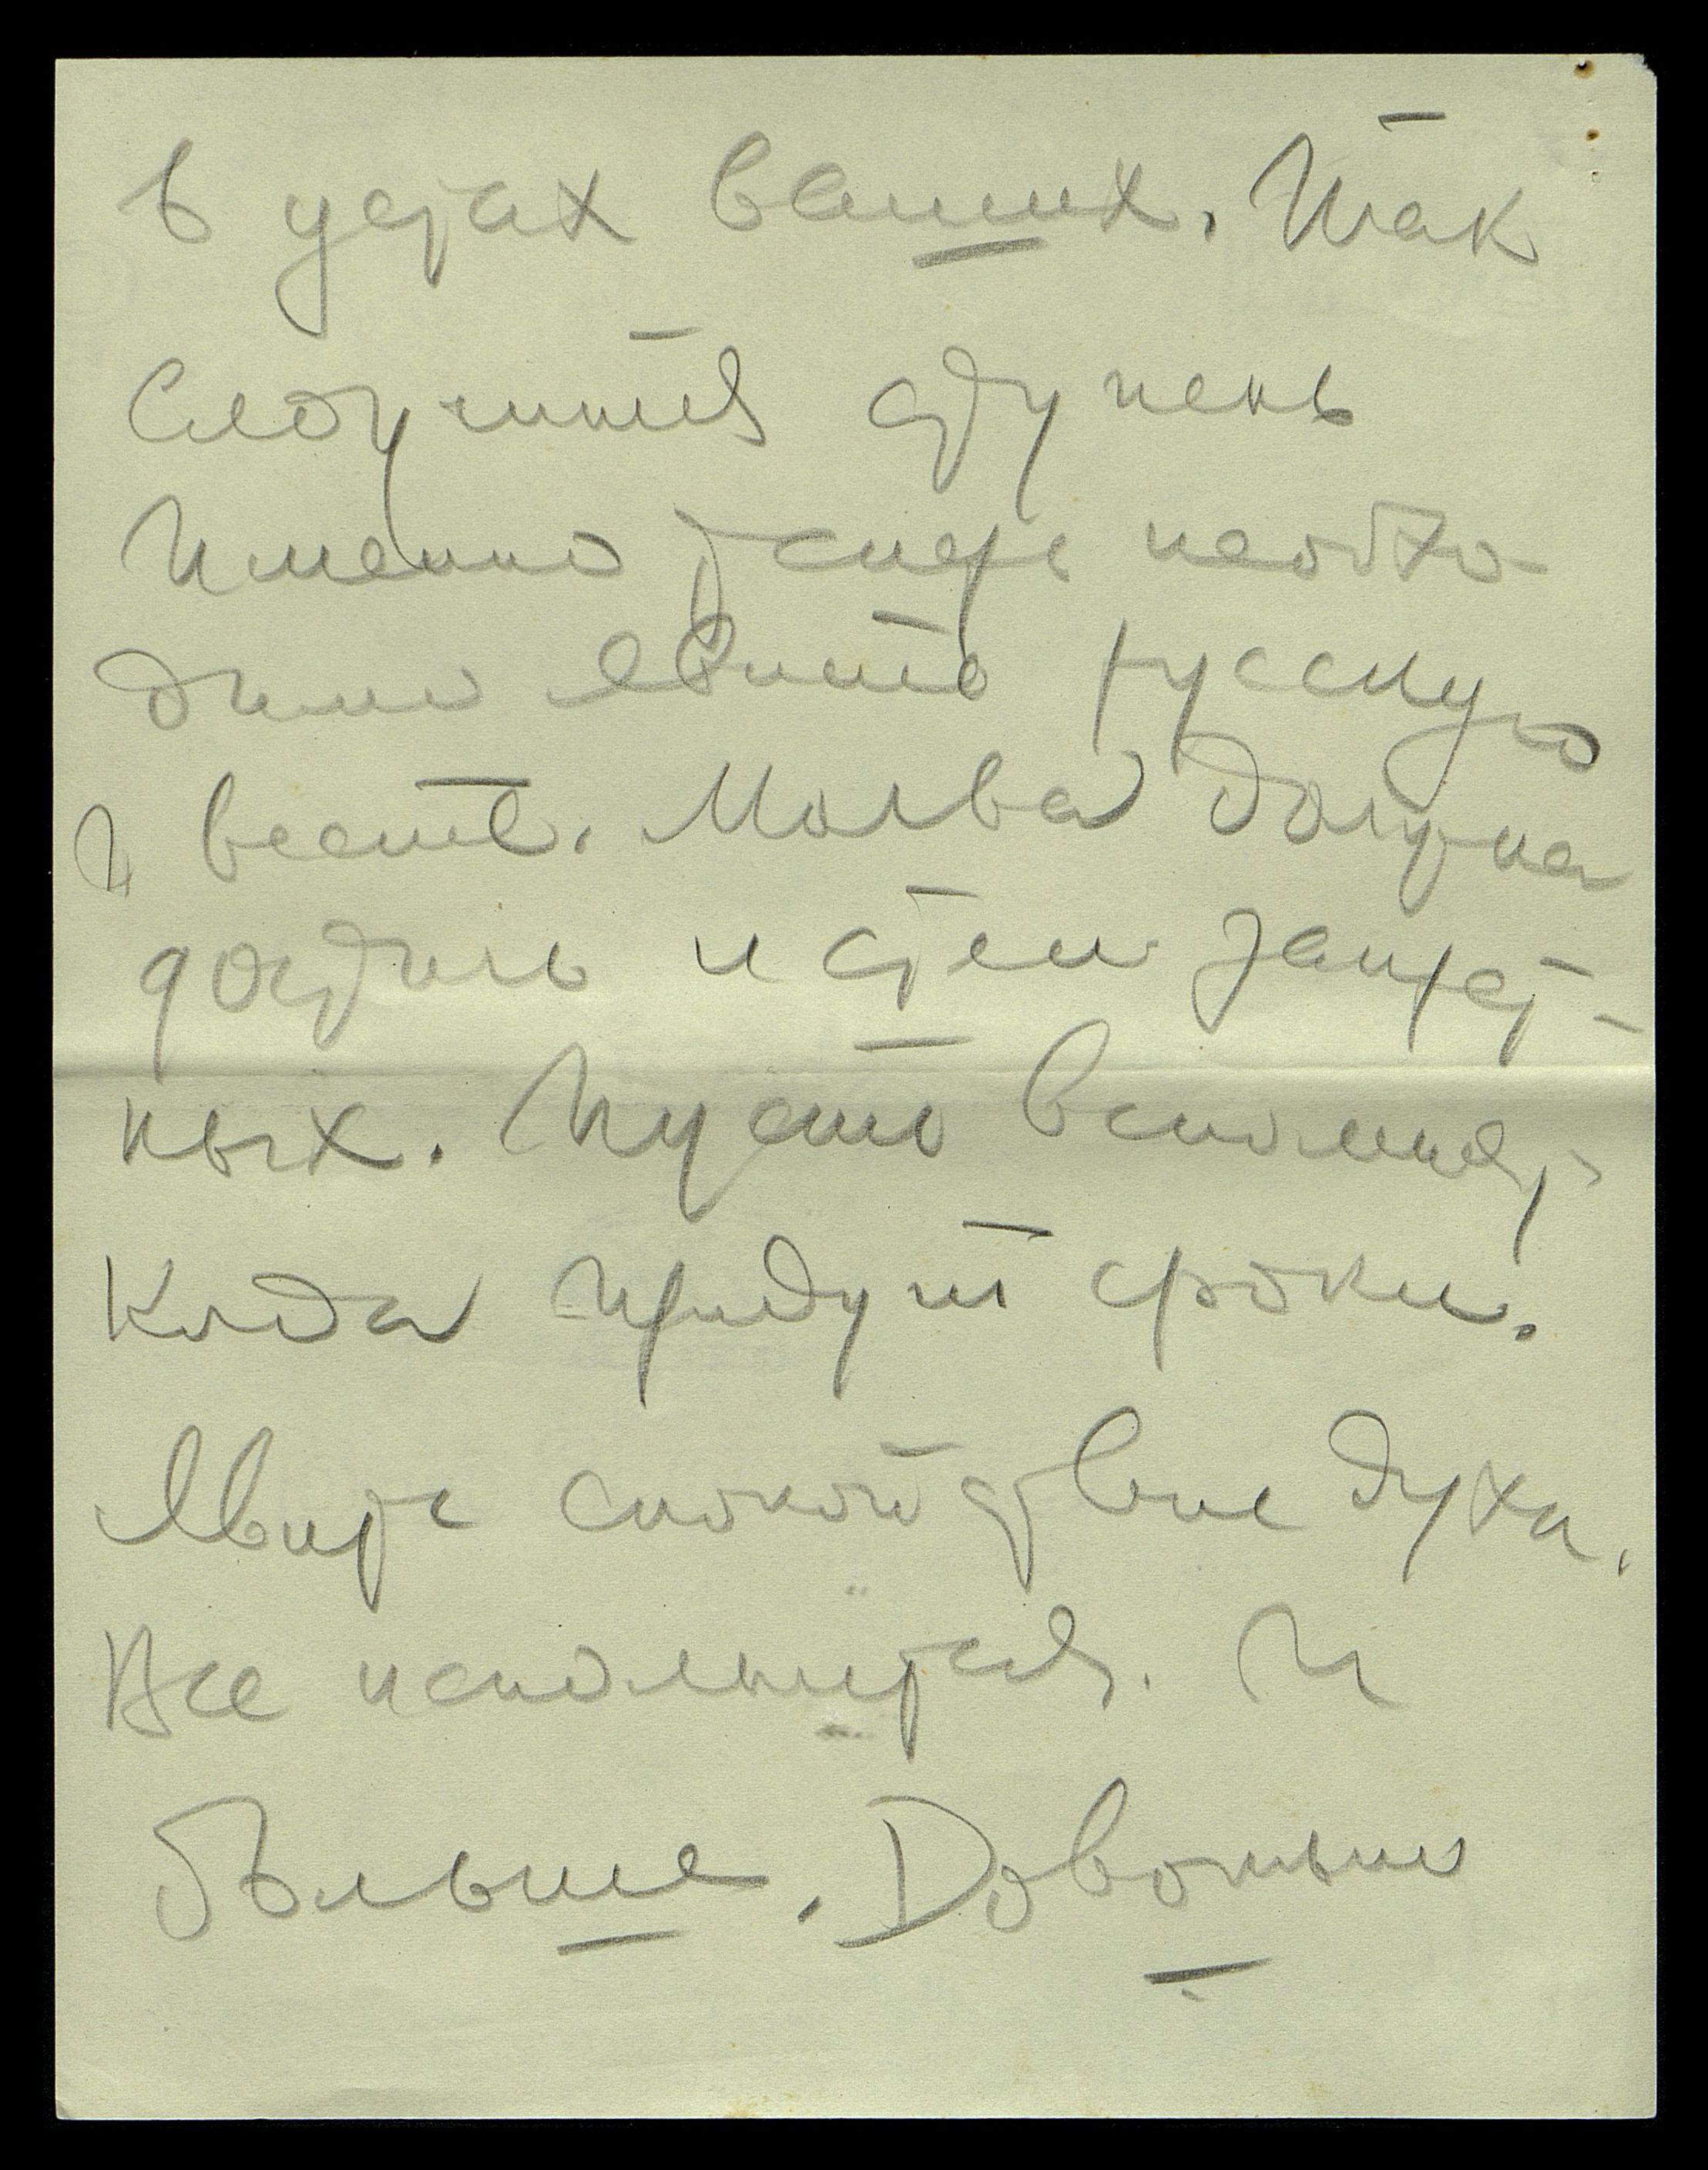 в устах ваших. Так
сложится ступень
Именно теперь необхо-
димо явить русскую
и весть. Молва должна
достичь и стен запрет-
ных. Пусть вспомнят
когда придут сроки.
Явите спокойствие духа.
Все исполнится. И
больше. Довольно